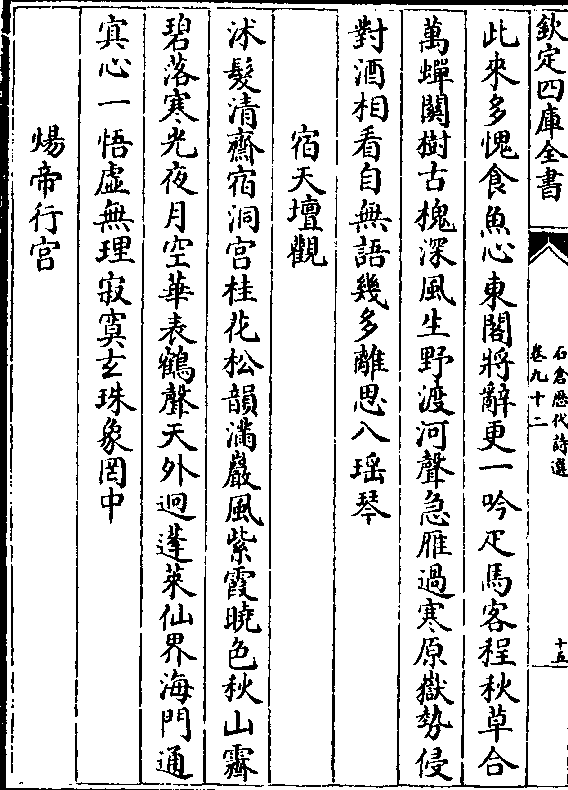 欽定四庫全書
石倉歷代詩選
卷九十二
十五
此來多愧食魚心東閣將辭更一吟疋馬客程秋草合
萬蟬關樹古槐深風生野渡河聲急雁過寒原嶽勢侵
對酒相看自無語幾多離思入瑶琴
宿天壇觀
沭髮清齋宿洞宫桂花松韻滿巖風紫霞曉色秋山霽
碧落寒光夜月空華表鶴聲天外迥蓬萊仙界海門通
寘心一悟虚無理寂寞玄珠象罔中
煬帝行宫